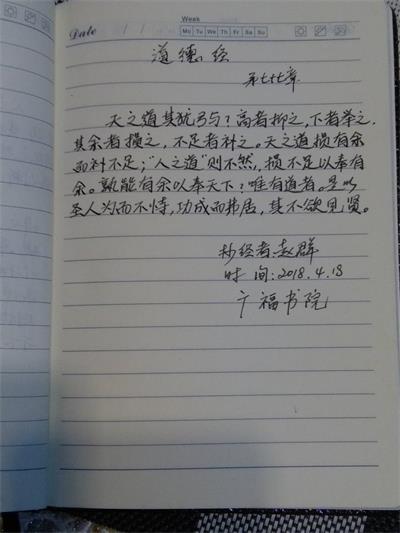 Date
Week
Mo Tu We Th Fr Sa Su
道德经
第七十七章
天之道其犹弓与?高者抑之,下者举之,
其余者损之,不足者补之。天之道损有余
而补不足;“人之道”则不然,损不足以奉有
余。孰能有余以奉天下?唯有道者。是以
圣人为而不恃,功成而弗居,其不欲见贤。
抄经者:赵群
时间:2018.4.18
广福书院